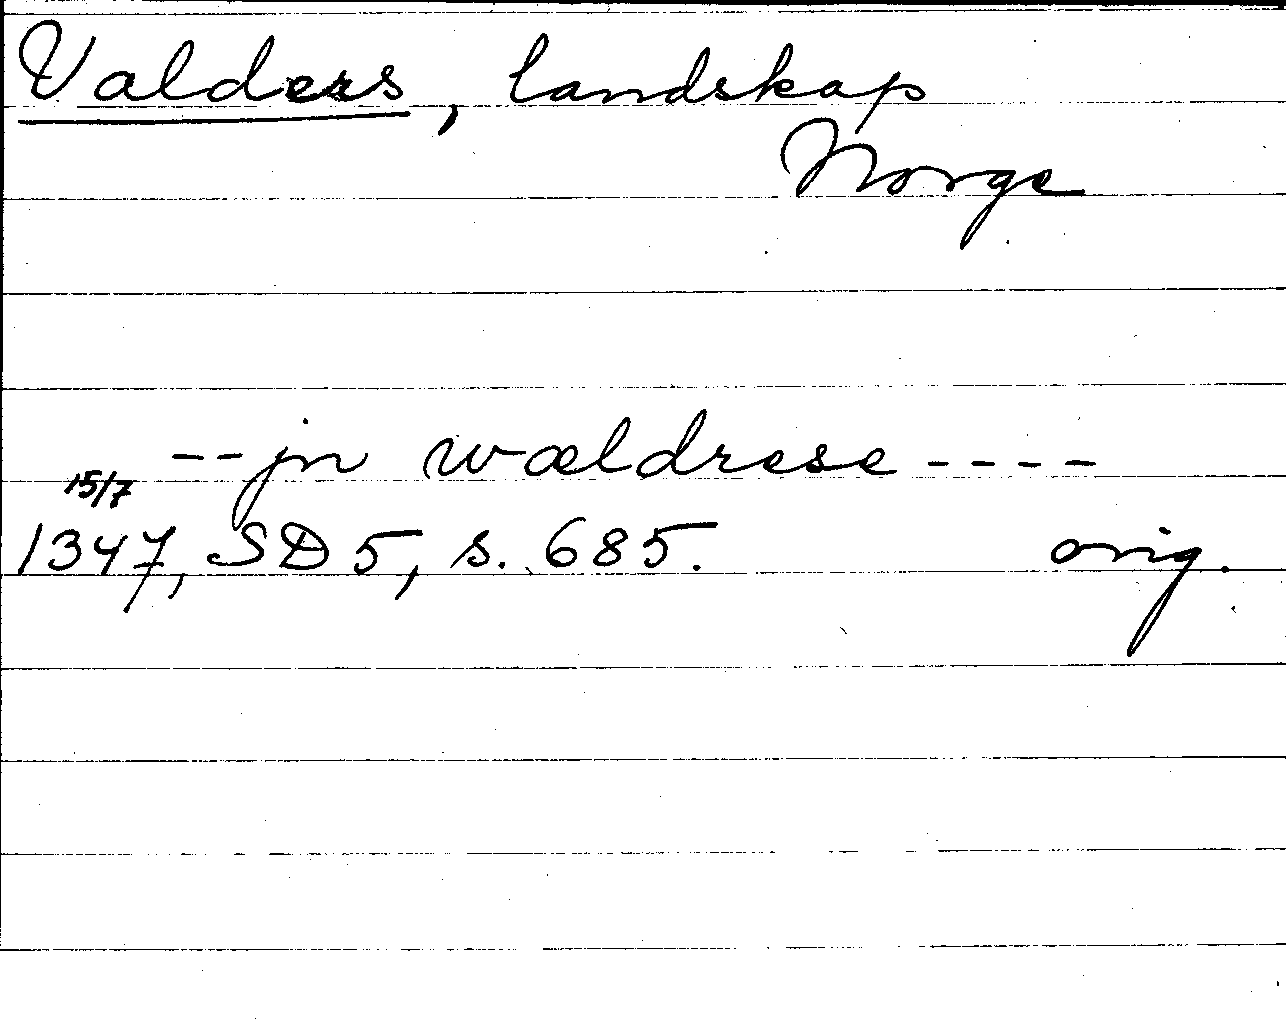 Valders, landskap
Norge
-- jn wældrese ----
15/7
1347, SD 5, s. 685. orig.